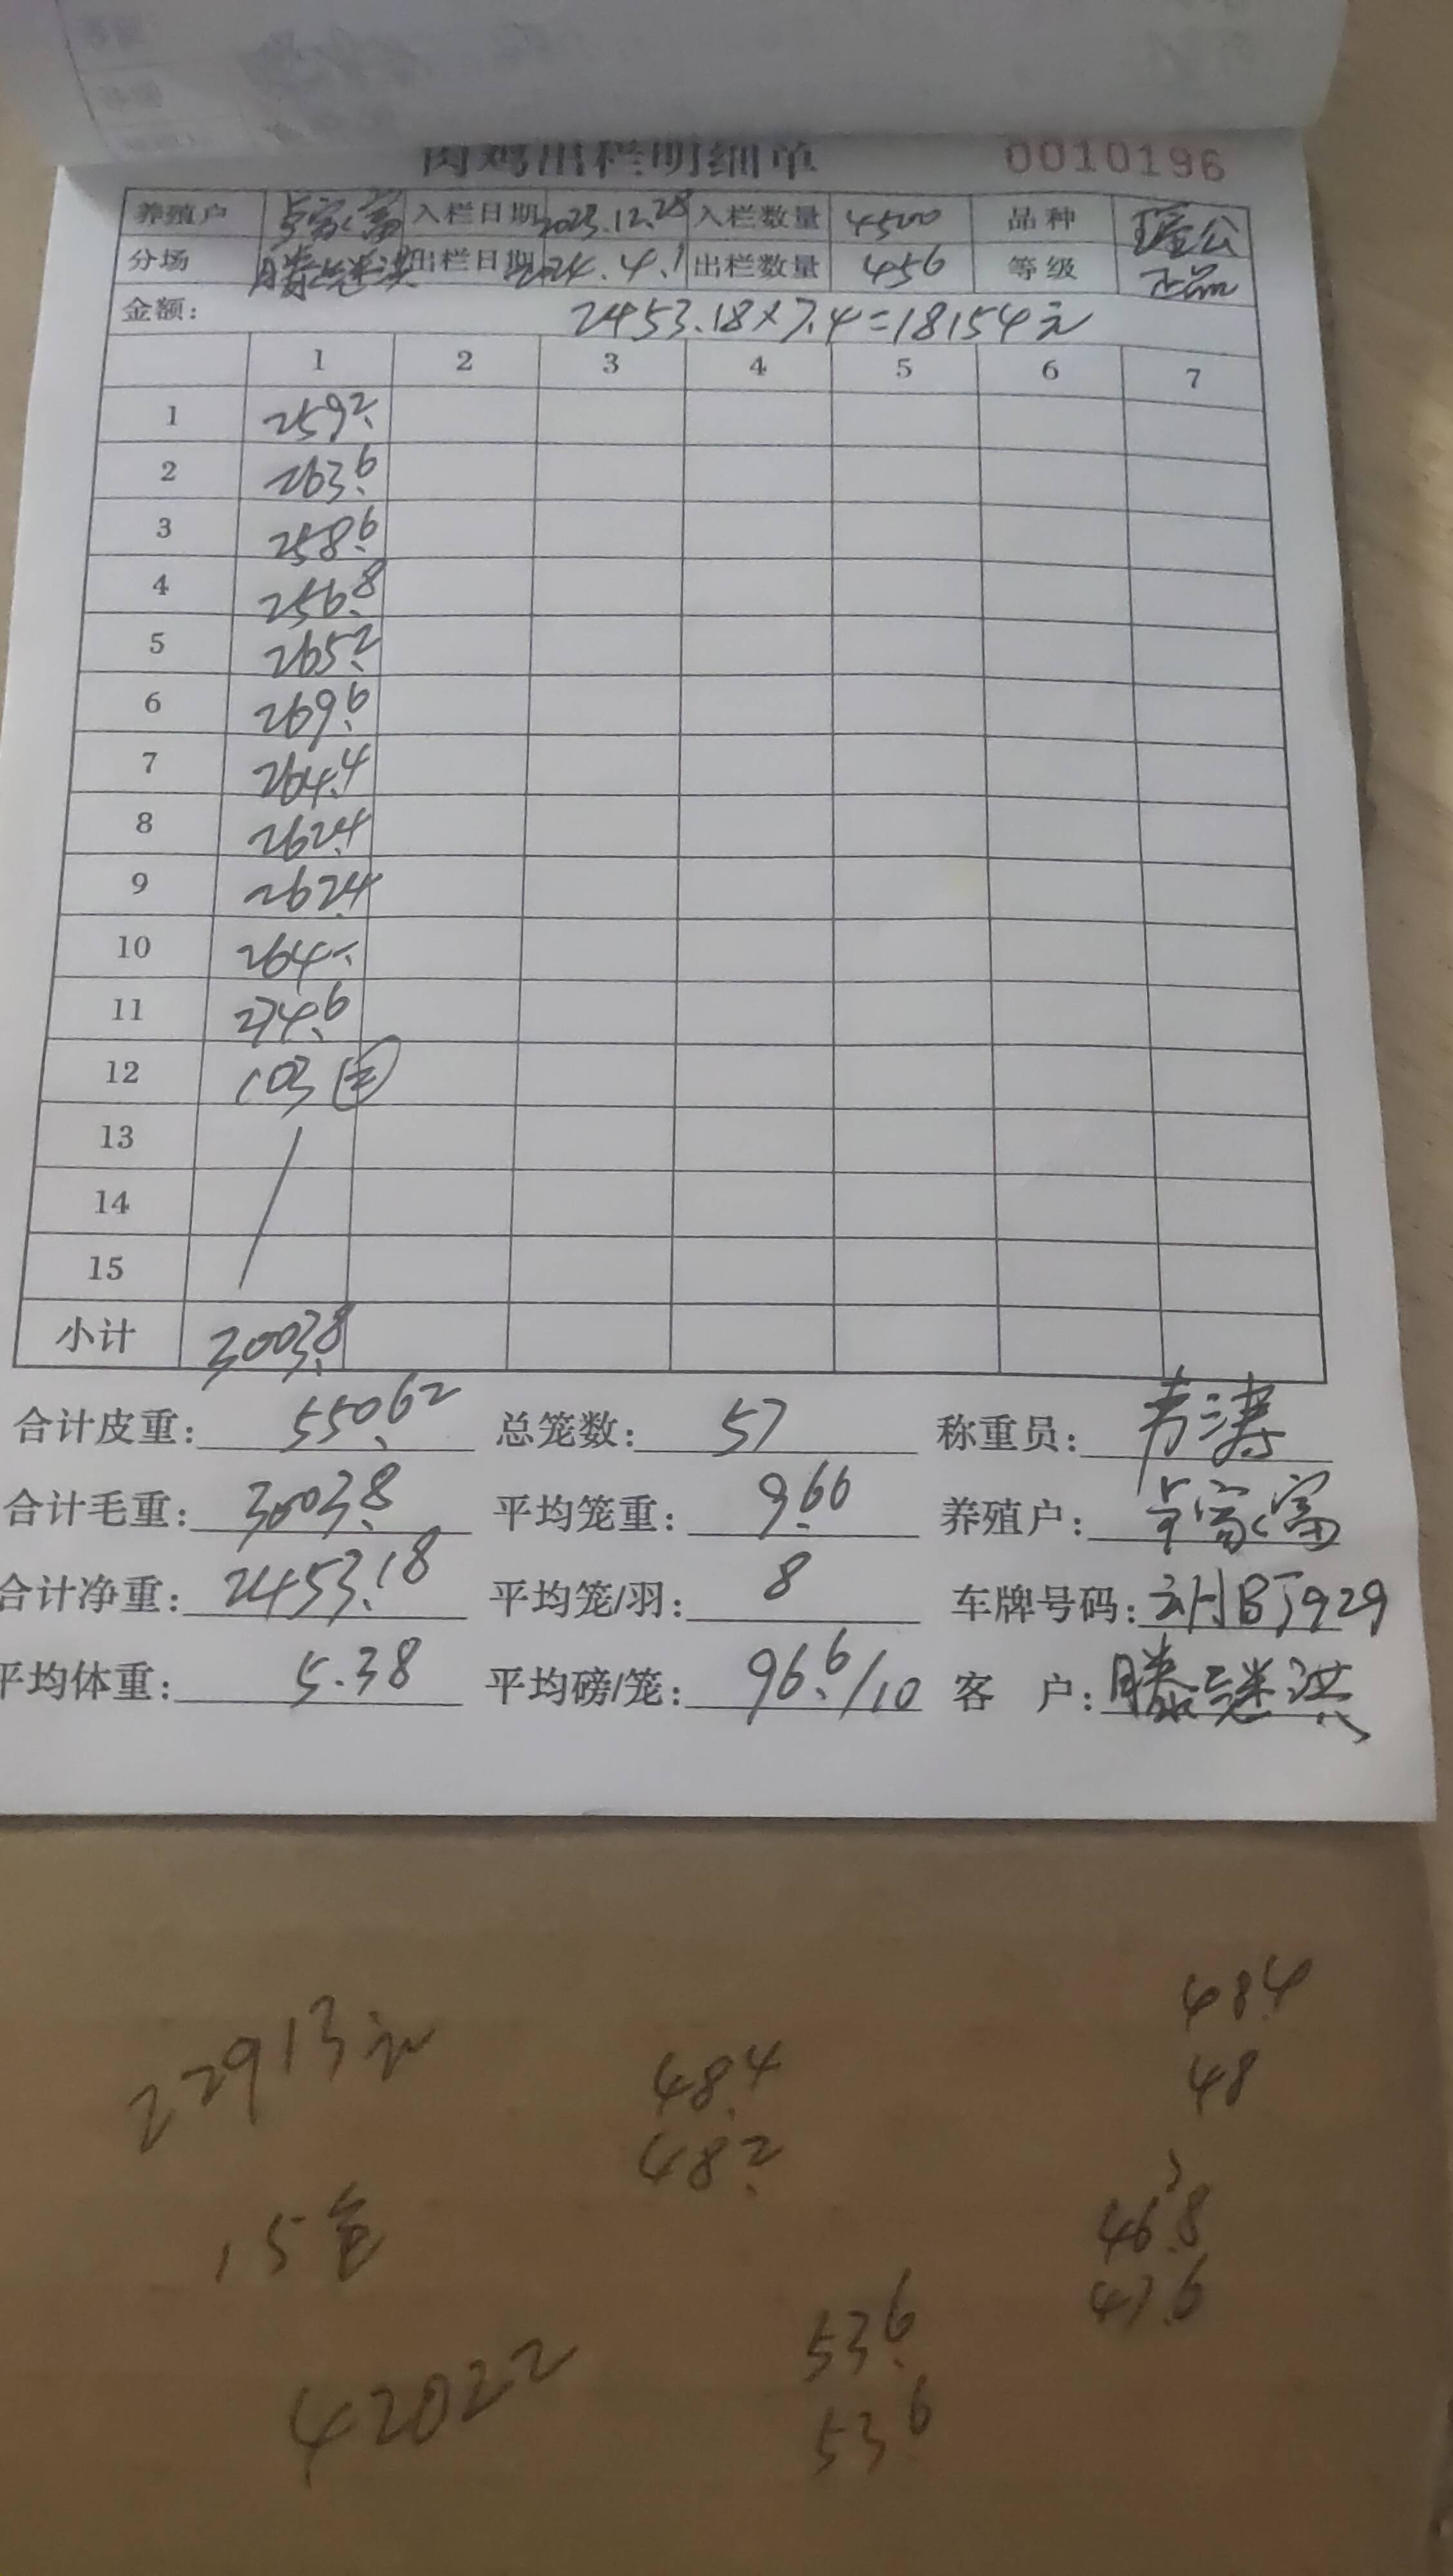 肉鸡出栏明细单 0010196
养殖户 卓家富 入栏日期 2023.12.28 入栏数量 4500 品种 瑶公
分场 滕继洪 出栏日期 2024.4.1 出栏数量 456 等级 正品
金额: 2453.18×7.4=18154元
1 2 3 4 5 6 7
1 259.2
2 263.6
3 258.6
4 256.8
5 265.2
6 269.6
7 264.4
8 262.4
9 262.4
10 264.
11 274.6
12 103
13
14
15
小计 3003.8
合计皮重: 550.62 总笼数: 57 称重员: 韦涛
合计毛重: 3003.8 平均笼重: 9.66 养殖户: 卓家富
合计净重: 2453.18 平均笼/羽: 8 车牌号码: BJ929
平均体重: 5.38 平均磅/笼: 96.6/10 客 户: 滕继洪
22913元
48.4
48.2
48.4
48
15笼
46.8
47.6
53.6
53.6
42022